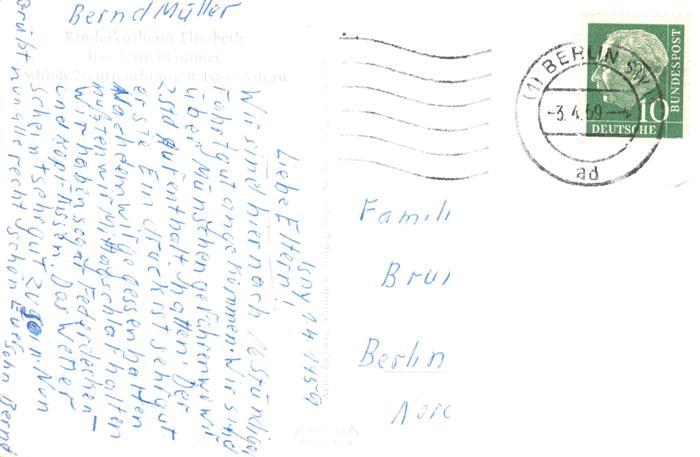 Bernd Müller
Kinderkurheim Elisabeth
Ilse Mittelhammer
Schloß Neutrauchburg b. Isny/Allgäu
Isny 1.4.1959
Liebe Eltern!
Wir sind hier nach 16 stündiger
Fahrt gut angekommen. Wir sind
über München gefahren wo wir
Aufenthalt hatten. Der
erste Eindruck ist sehr gut
Nachdem wir gegessen hatten
mußten wir Mittagschlaf halten
Wir haben sogar Federdecken
und Kopfkissen. Das Wetter
scheint sehr gut zu Nun
grüßt nun alle recht schön Euer Sohn Bernd
(1) BERLIN SW
-3.4.59
ad
10
DEUTSCHE
BUNDESPOST
Famil
Bru
Berlin
Nor